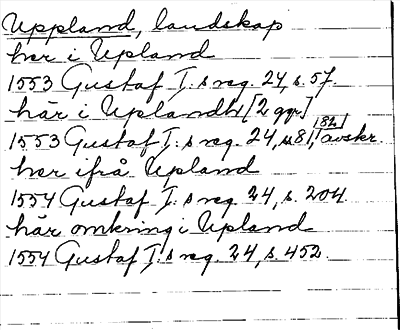 Uppland, landskap
her i Upland
1553 Gustaf I:s reg. 24, s. 57.
här i Uplandh [2 ggr]
1553 Gustaf I:s reg. 24, s 81, 82, avskr.
her ifrå Upland
1554 Gustaf I:s reg. 24, s. 204.
här omkring i Upland
1554 Gustaf I:s reg. 24, s. 452.